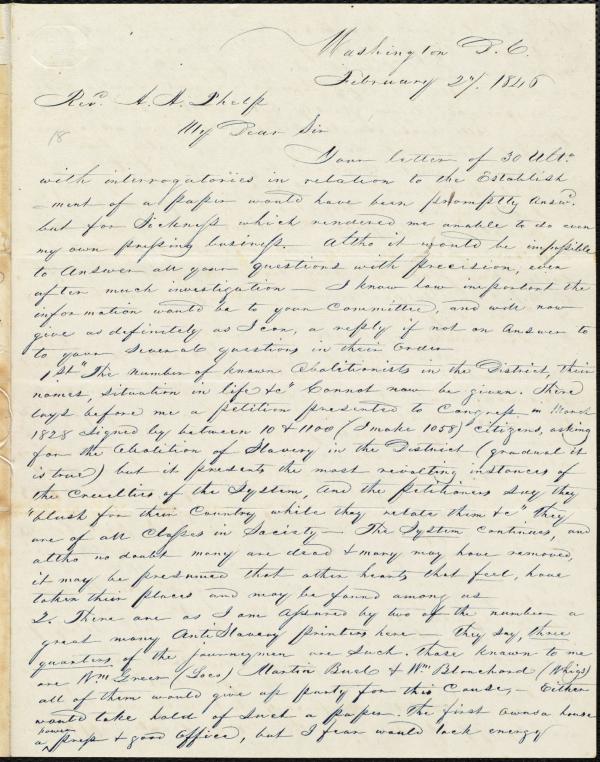 Washington D. C.
February 2d/. 1846
Revd. A. A. Phelps
18
My Dear Sir
Your letter of 30 Ulto.
with interrogatories in relation to the Establish
-ment of a paper would have been promptly answd.
but for Sickness which rendered me unable to do even
my own pressing business. Altho it would be impossible
to Answer all your questions with precision, even
after much investigation — I know how important the
information would be to your Committee, and will now
give as definitely as I can, a reply if not an Answer to
to your several questions in their order
1st "The number of known Abolitionists in the District, their
names, situation in life &c" Cannot now be given. There
lays before me a petition presented to Congress in March
1828 signed by between 10 & 1100 (I make 1058) Citizens, asking
for the Abolition of Slavery in the District (gradual it
is true) but it presents the most revolting instances of
the Cruelties of the System, and the petitioners say they
"blush for their Country while they relate them &c" they
are of all Classes in Society — The System continues, and
altho no doubt many are dead & many may have removed,
it may be presumed that other hearts that feel, have
taken their places and may be found among us
2. There are as I am assured by two of the number a
great many AntiSlavery printers here — they say, three
quarters of the journeymen are such. those known to me
are Wm Greer (Loco) Martin Buel & Wm Blanchard (Whigs)
all of them would give up party for this Cause, — Either
would take hold of such a paper. the first owns a house
a power press & good Office, but I fear would lack energy